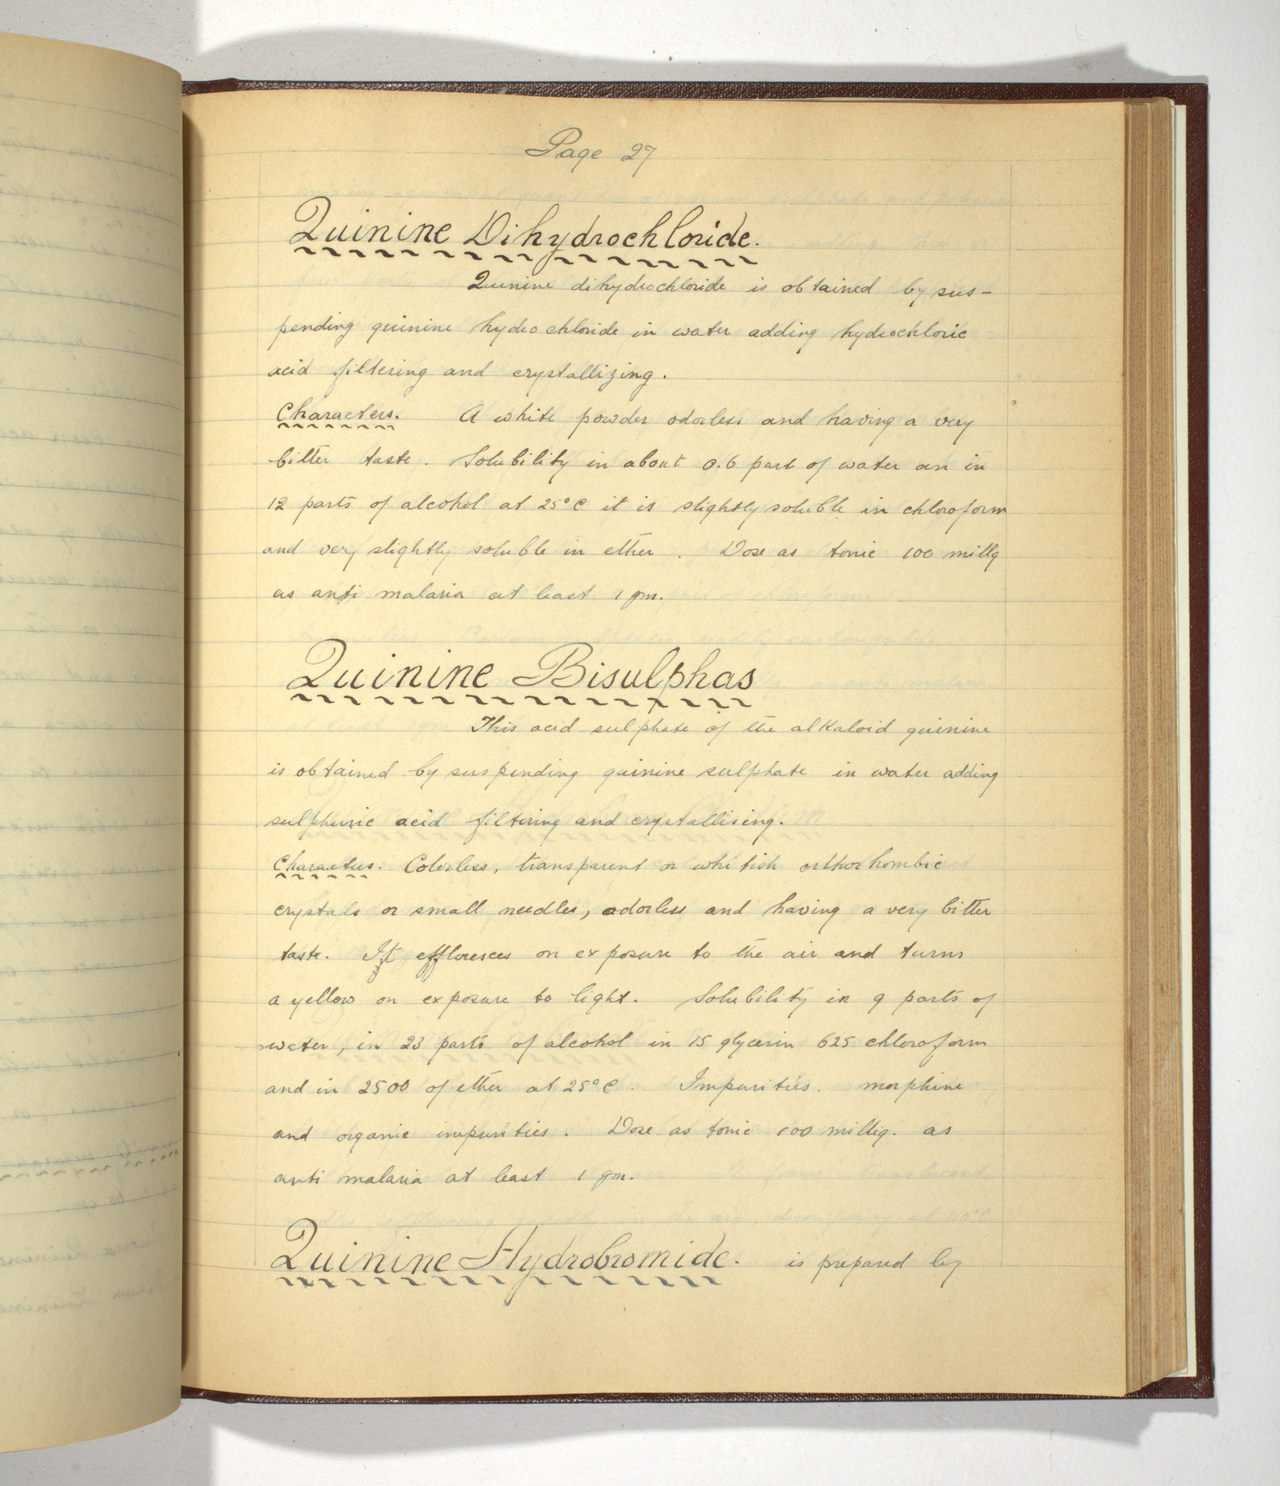 Page 27
Quinine Dihydrochloride.
Quinine dihydrochloride is obtained by sus-
pending quinine hydrochloride in water adding hydrochloric
acid filtering and crystallizing.
Characters. A white powder odorless and having a very
bitter taste. Solubility in about 0.6 part of water an in
12 parts of alcohol at 25°C it is slightly soluble in chloroform
and very slightly soluble in ether. Dose as tonic 100 millg
as anti malaria at least 1 gm.
Quinine Bisulphas
This acid sulphate of the alkaloid quinine
is obtained by suspending quinine sulphate in water adding
sulphuric acid filtering and crystallising.
Characters. Colorless, transparent or whitish orthorhombic
crystals or small needles, odorless and having a very bitter
taste. It effloresces on exposure to the air and turns
a yellow on exposure to light. Solubility in 9 parts of
water, in 23 parts of alcohol in 15 glycerin 625 chloroform
and in 2500 of ether at 25°C. Impurities. morphine
and organic impurities. Dose as tonic 100 millig. as
anti malaria at least 1 gm.
Quinine Hydrobromide. is prepared by